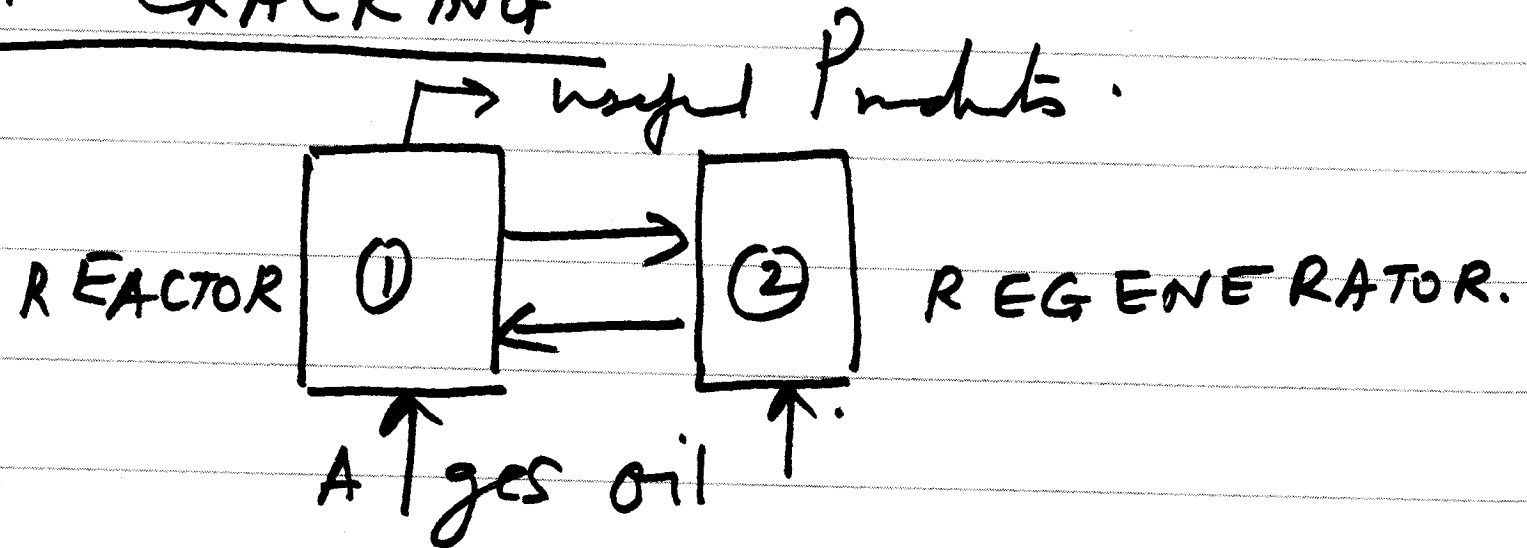 CRACKING
useful Products.
REACTOR ① ② REGENERATOR.
A ges oil